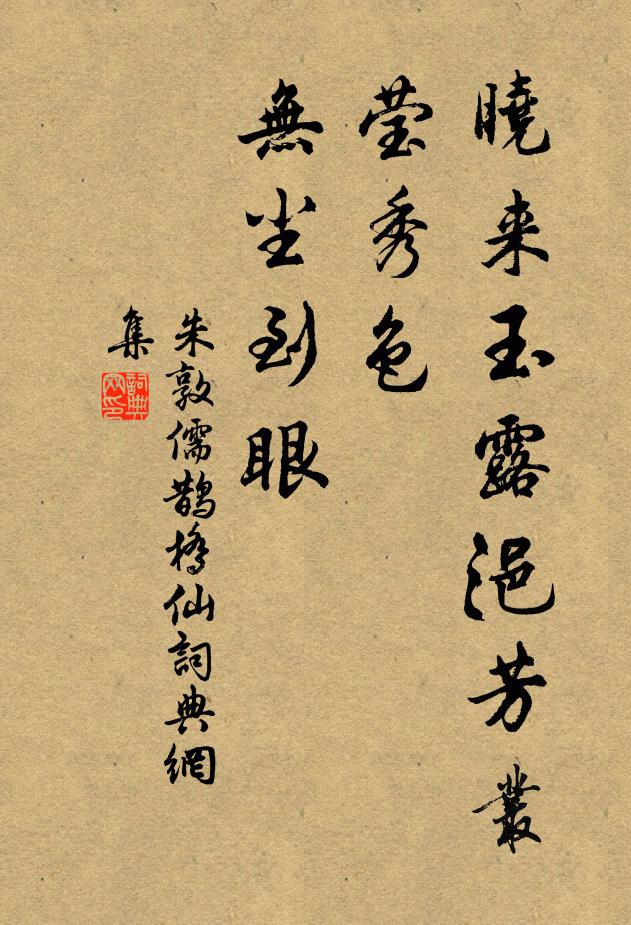 曉来玉露浥芳叢
莹秀色
無尘到眼
朱敦儒鵲橋仙詞典網
集
詞典
网印